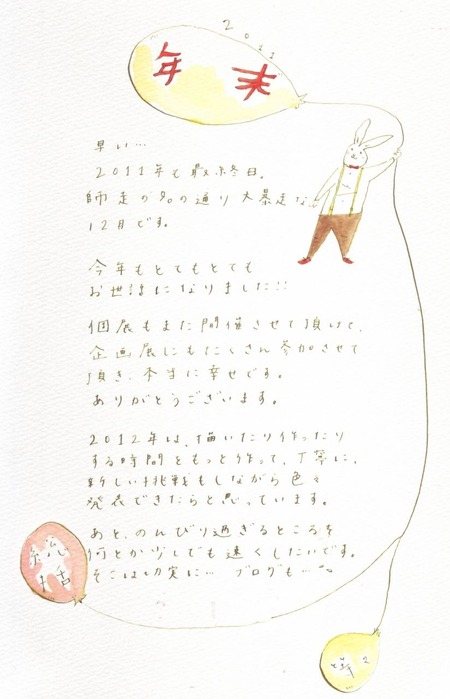 2011
年末
早い…
2011年も最終日。
師走の名の通り大暴走な
12月です。
今年もとてもとても
お世話になりました!!
個展もまた開催させて頂けて、
企画展にもたくさん参加させて
頂き、本当に幸せです。
ありがとうございます。
2012年は、描いたり作ったり
する時間をもっと作って、丁寧に、
新しい挑戦もしながら色々
発表できたらと思っています。
あと、のんびり過ぎるところを
何とか少しでも速くしたいです。
そこは切実に… ブログも…
総括